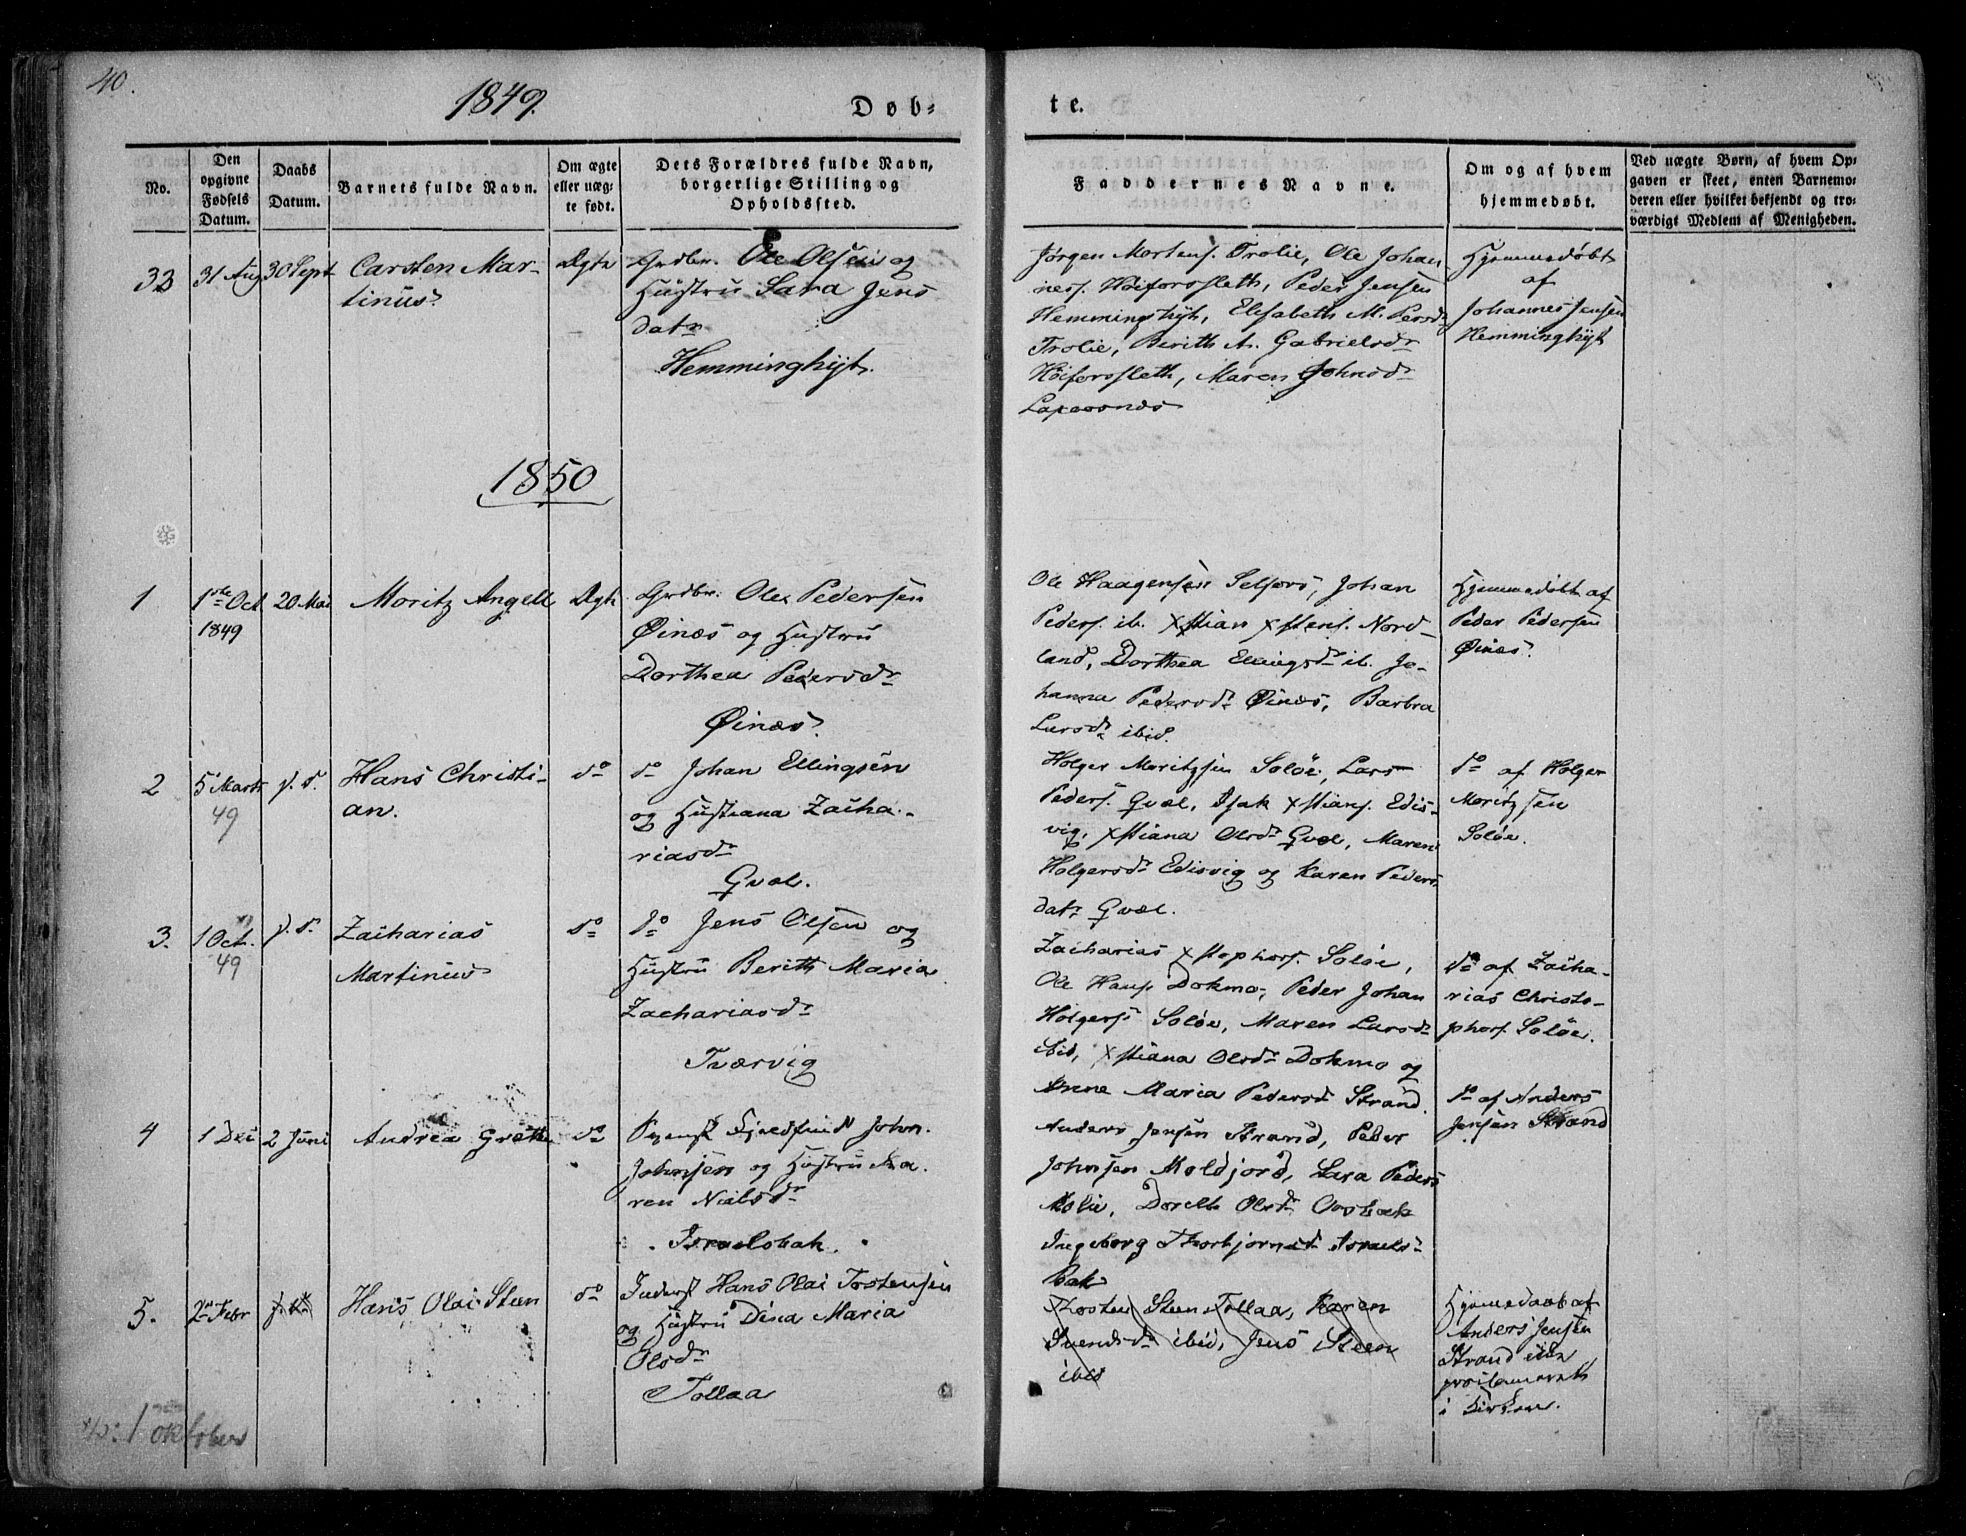 40.
1849.
Døb-
te.
No.
Den opgivne Fødsels Datum.
Daabs Datum.
Barnets fulde Navn.
Om ægte eller uæg-te født.
Dets Forældres fulde Navn, borgerlige Stilling og Opholdssted.
Faddernes Navne.
Om og af hvem hjemmedøbt.
Ved uægte Børn, af hvem Op-
gaven er skeet, enten Barnemo-
deren eller hvilket bekjendt og tro-
værdigt Medlem af Menigheden.
33
31 Aug
30 Sept
Carsten Mar-
tinus
Ægte
Grdbr. Ole Olsen og
Hustru Sara Jens
datr
Hemminghÿt.
Jørgen Mortens. Trolie, Ole Johan
ness. Høiforsleth, Peder Jensen
Hemminghÿt, Elisabeth M. Persdr
Trolie, Berith A. Gabrielsdr
Høiforsleth, Maren Johnsdr
Hjemmedøbt
af
Johannes Jensen
Hemminghÿt
1850
1
1ste Oct
1849
20 Mai
Moritz Angell
Ægte
Grdbr. Ole Pedersen
Øinæs og Hustru
Dorthea Pedersdr
Øinæs.
Ole Haagensen Selfors, Johan
Peders. ib. Xstian Xstens. Nord-
land, Dorthea Ellingsdr ib. Jo-
hanna Pedersdr Øinæs, Barbra
Larsdr ibid.
Hjemmedøbt af
Peder Pedersen
Øinæs.
2
5 Marts
49
p. d.
Hans Christi-
an.
do
do Johan Ellingsen
og Hustru Zacha-
riasdr
Qvæl.
Holger Moritzsen Soløe, Lars
Peders. Qvæl, Isak Xstians. Edis-
vig, Xstiana Olsdr Qvæl, Maren
Holgersdr Edisvig og Karen Peders
datr Qvæl.
do af Holger
Moritzsen
Soløe.
3.
1 Oct.
49
p. d.
Zacharias
Martinus
do
do Jens Olsen og
Hustru Berith Maria
Zachariasdr
Tværvig
Zacharias Xstophers. Soløe,
Ole Hans. Dokmo, Peder Johan
Holgers. Soløe, Maren Larsdr
ibid, Xstiana Olsdr Dokmo og
Anne Maria Pedersd Strand.
do af Zacha-
rias Christo-
phers. Soløe.
4
1 Dec
2 Juni
Andrea Grethe
do
Svensk Fjeldfind John
Johnsen og Hustru Ka
ren Nielsdr
Israelsbak.
Anders Jensen Strand, Peder
Johnsen Moldjord, Sara Peders
Dorethe Olsdr
Ingeborg Thorbjornsd Israels-
Bak
do af Anders
Jensen Strand
5.
2den Febr
Hans Olai Steen
do
Inderst Hans Olai Tostensen
og Hustru Dina Maria
Olsdr
Tollaa
Tosten Steen Tollaa, Karen
Svendsdr ibid, Jens Steen
ibid
Hjemmedaab af
Anders Jensen
Strand
i Kirken.
1 oktober